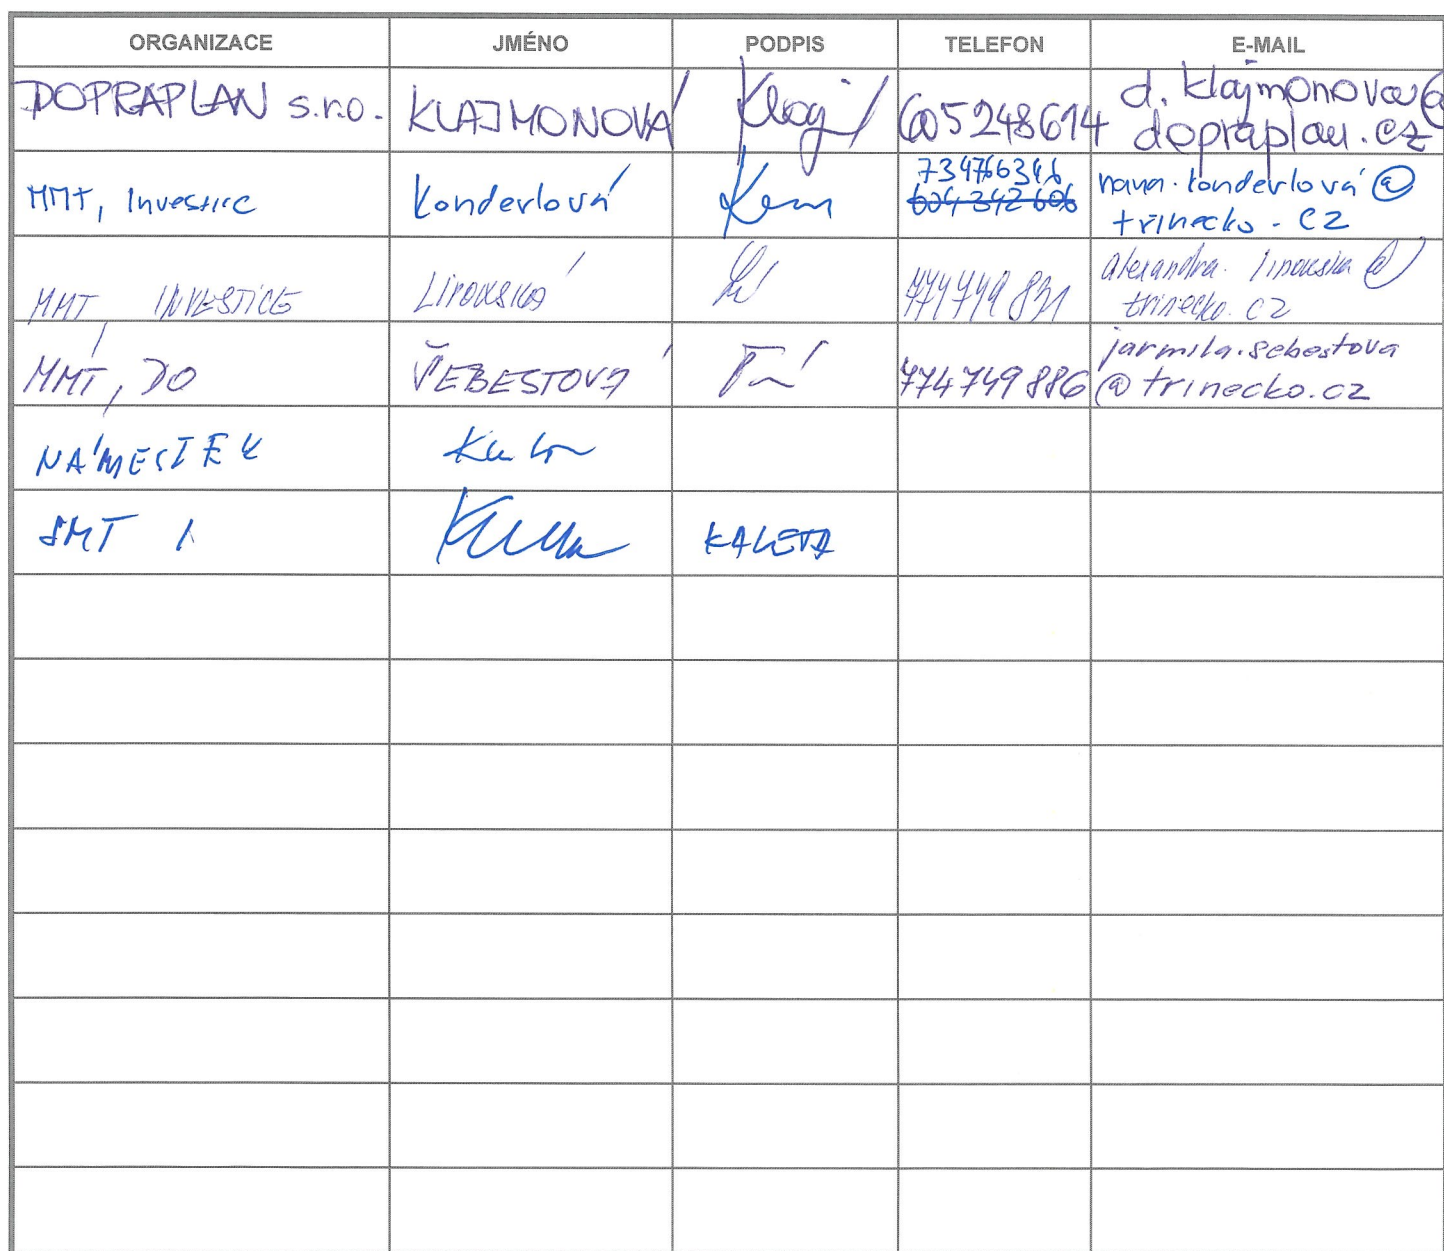 ORGANIZACE JMÉNO PODPIS TELEFON E-MAIL
DOPRAPLAN s.r.o. KLAJMONOVÁ 605248614 d.klajmonova@
dopraplan.cz
MMT, Investice Konderlová 734766346 hana.konderlová@
604 342 606 trinecko.cz
MMT, INVESTICE LIPOWSKÁ 774749 831 alexandra.lipowska@
trinecko.cz
MMT, DO ŠEBESTOVÁ 774749886 jarmila.sebestova
@trinecko.cz
NÁMĚSTEK
SMT KALETA